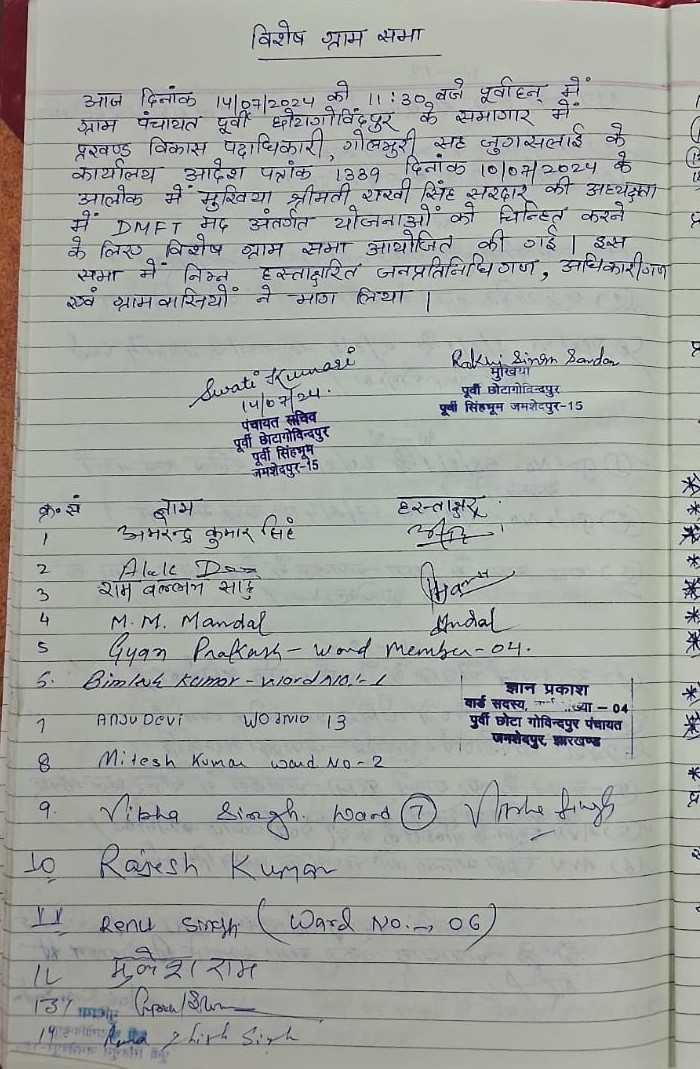 विशेष ग्राम सभा
आज दिनांक 14/07/2024 को 11:30 बजे पूर्वाहन् में
ग्राम पंचायत पूर्वी छोटागोविंदपुर के सभागार में
प्रखण्ड विकास पदाधिकारी, गोलमुरी सह जुगसलाई के
कार्यालय आदेश पत्रांक 1339 दिनांक 10/07/2024 के
आलोक में मुखिया श्रीमती राखी सिंह सरदार की अध्यक्षता
में DMFT मद अंतर्गत योजनाओं को चिन्हित करने
के लिए विशेष ग्राम सभा आयोजित की गई | इस
सभा में निम्न हस्ताक्षरित जनप्रतिनिधिगण, अधिकारीगण
एवं ग्रामवासियों ने भाग लिया |
Swati Kumari
14/07/24.
पंचायत सचिव
पूर्वी छोटागोविन्दपुर
पूर्वी सिंहभूम
जमशेदपुर-15
Rakhi Singh Sardar
मुखिया
पूर्वी छोटागोविन्दपुर
पूर्वी सिंहभूम जमशेदपुर-15
क्र०सं नाम हस्ताक्षर
1 अमरेन्द्र कुमार सिंह
2
3 राम वल्लभ साहु
4 M.M. Mandal
5 Gyan Prakash - word member-04.
6. Kumar - word NO:- 1
ज्ञान प्रकाश
वार्ड सदस्य, - 04
पुर्वी छोटा गोविन्दपुर पंचायत
जमशेदपुर, झारखण्ड
7 ANJU DEVI 13
8 Mitesh Kumar ward NO-2
9. Vibha Singh. Ward 7 Vibha Singh
10 Rajesh Kumar
11 Renu Singh (Ward No:-, 06)
12 राम
13
14 Singh